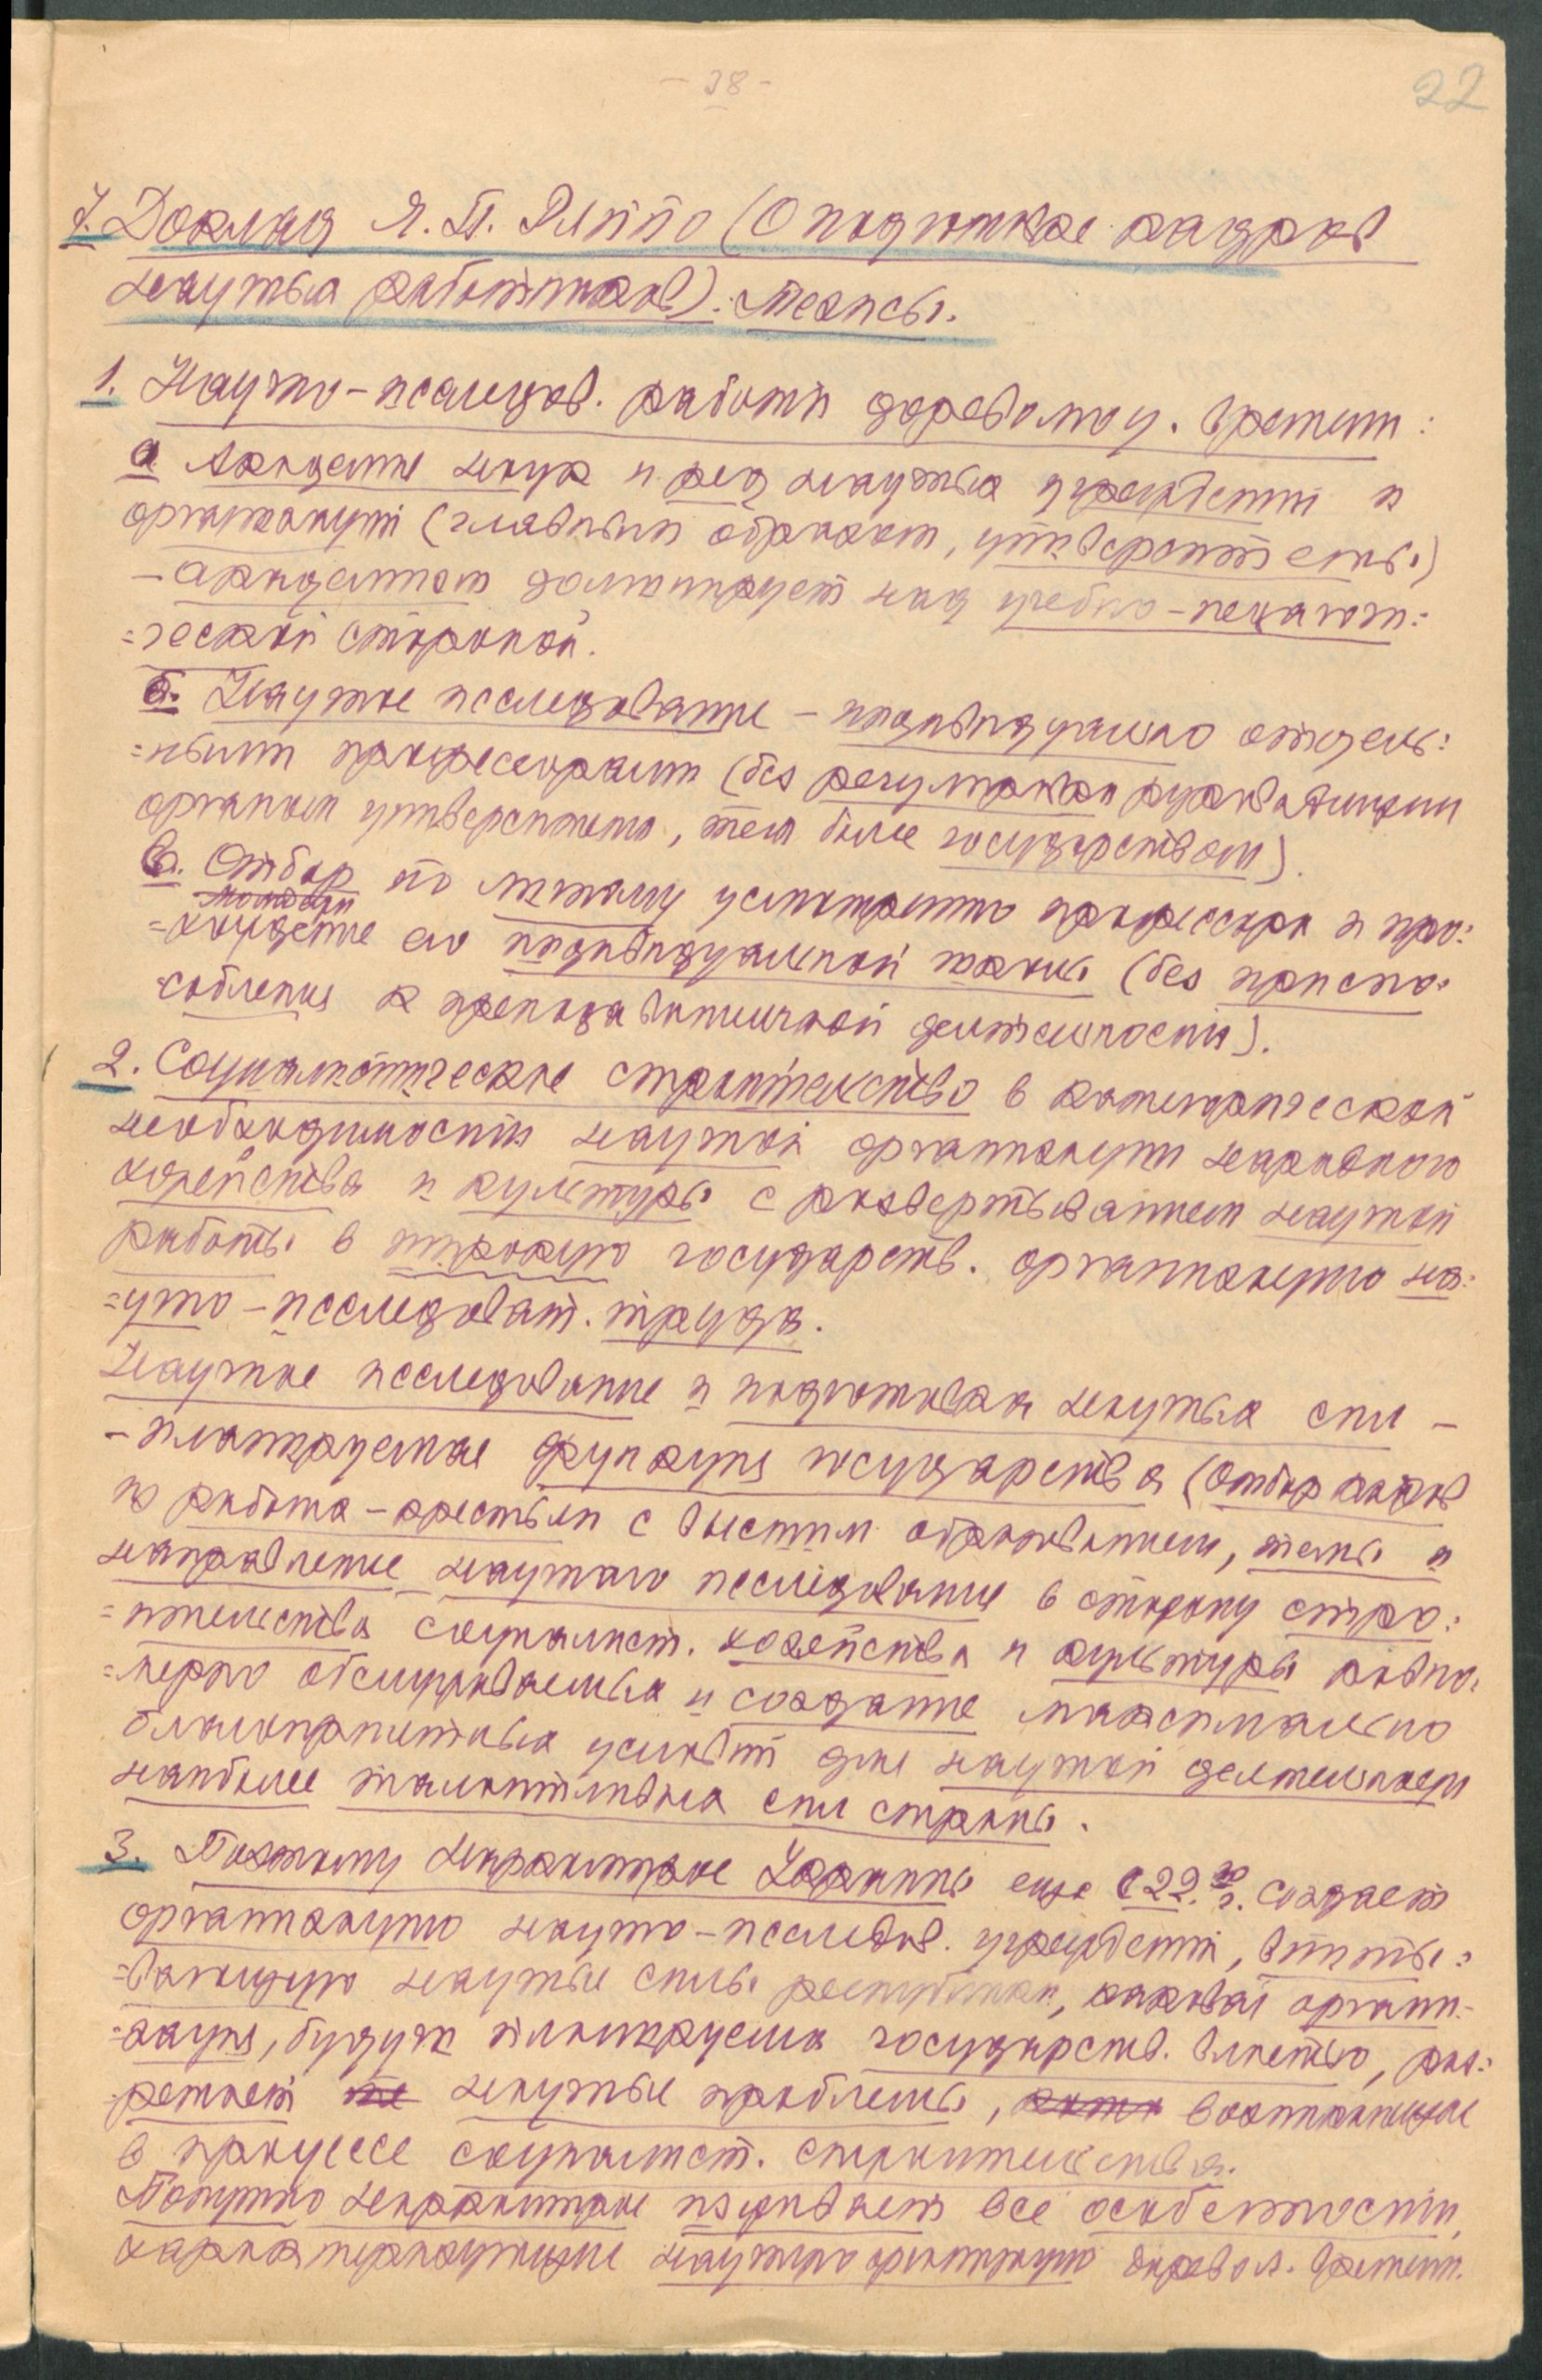 - 38 -
22
7. Доклад Я. П. Ряппо (О подготовке кадров
научных работников). Тезисы.
1. Научно-исследов. работа дореволюц. времени:
а Академия наук и ряд научных учреждений и
организаций (главным образом, университеты)
– академизм доминирует над учебно-педагоги=
=ческой стороной.
б. Научное исследование – индивидуально отдель=
=ными профессорами (без регулировки руководящими
органами университета, тем более государством).
в. Отбор по личному усмотрению профессора и про=
=хождение его индивидуальной школы (без приспо=
=собления к преподавательской деятельности).
2. Социалистическое строительство в категорической
необходимости научной организации народного
хозяйства и культуры с развертыванием научной
работы в широкую государств. организацию на=
=учно-исследоват. труда.
Научное исследование и подготовка научных сил –
– планируемые функции государства (отбор кадров
из рабоче-крестьян с высшим образованием, темы и
направление научного исследования в сторону строи=
=ительства социалист. хозяйства и культуры равно=
=мерно обслуживаемых и создание максимально
благоприятных условий для научной деятельности
наиболее талантливых сил страны.
3. Поэтому Наркомпрос Украины еще с 22.го г. создает
организацию научно-исследов. учреждений, втяги=
=вающую научные силы республики, каковая органи=
=зация, будучи планируема государств. властью, раз=
=решает научные проблемы, возникающие
в процессе социалист. строительства.
Попутно Наркомпрос изживает все особенности,
характеризующие научную организацию доревол. времени.